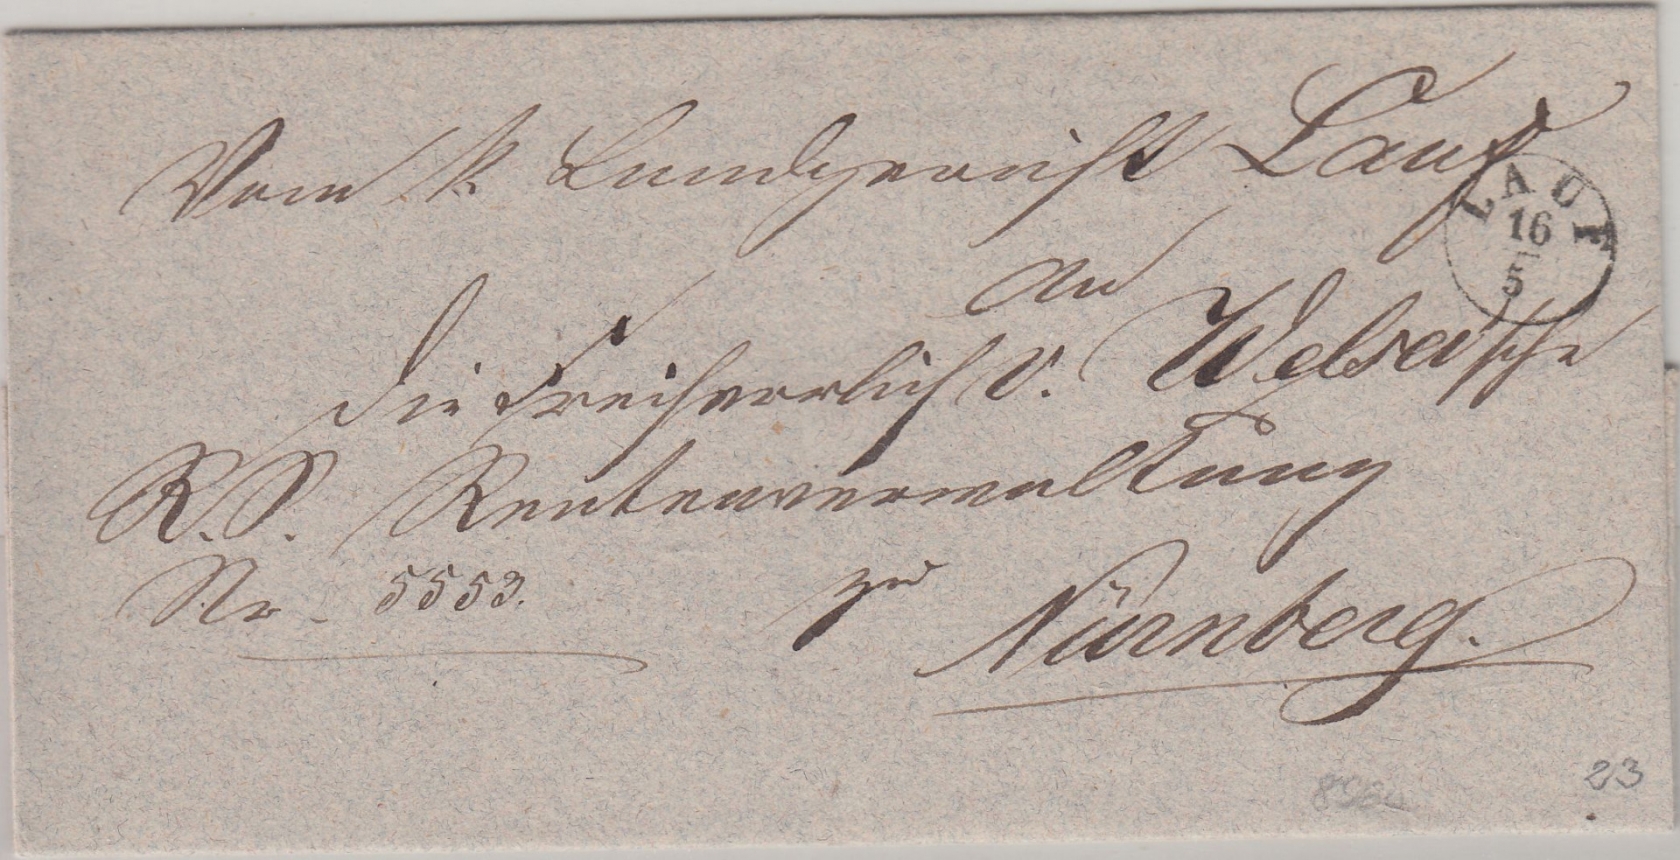 Vom k Landgericht Lauf
LAUF
16
5
An
die Freiherrlich v. Welser'sche
R. S. Rentenverwaltung
Nr. 5553.
zu
Nürnberg.
23